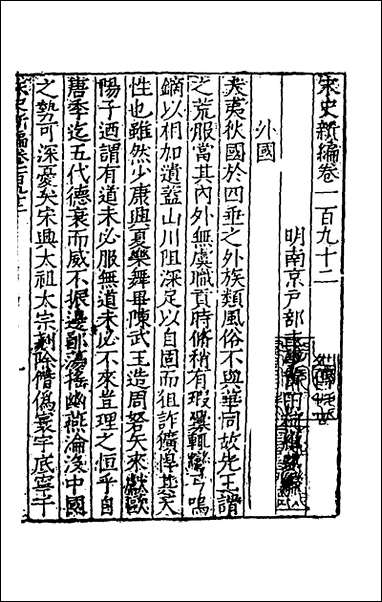 宋史新編卷一百九十二
明南京户部主
外國
夫夷狄國於四垂之外族類風俗不與華同故先王謂
之荒服當其內外無虞職貢時脩稍有瑕釁輒彎弓鳴
鏑以相加遺蓋山川阻深足以自固而狙詐獷悍其天
性也雖然少康興夏樂舞畢陳武王造周砮矢來獻歐
陽子迺謂有道未必服無道未必不來豈理之恒乎自
唐季迄五代德衰而威不振邊鄙蕩搖幽燕淪没中國
之勢可深憂矣宋興太祖太宗剗除僭僞寰宇底寧于
宋史新編卷一百九十二